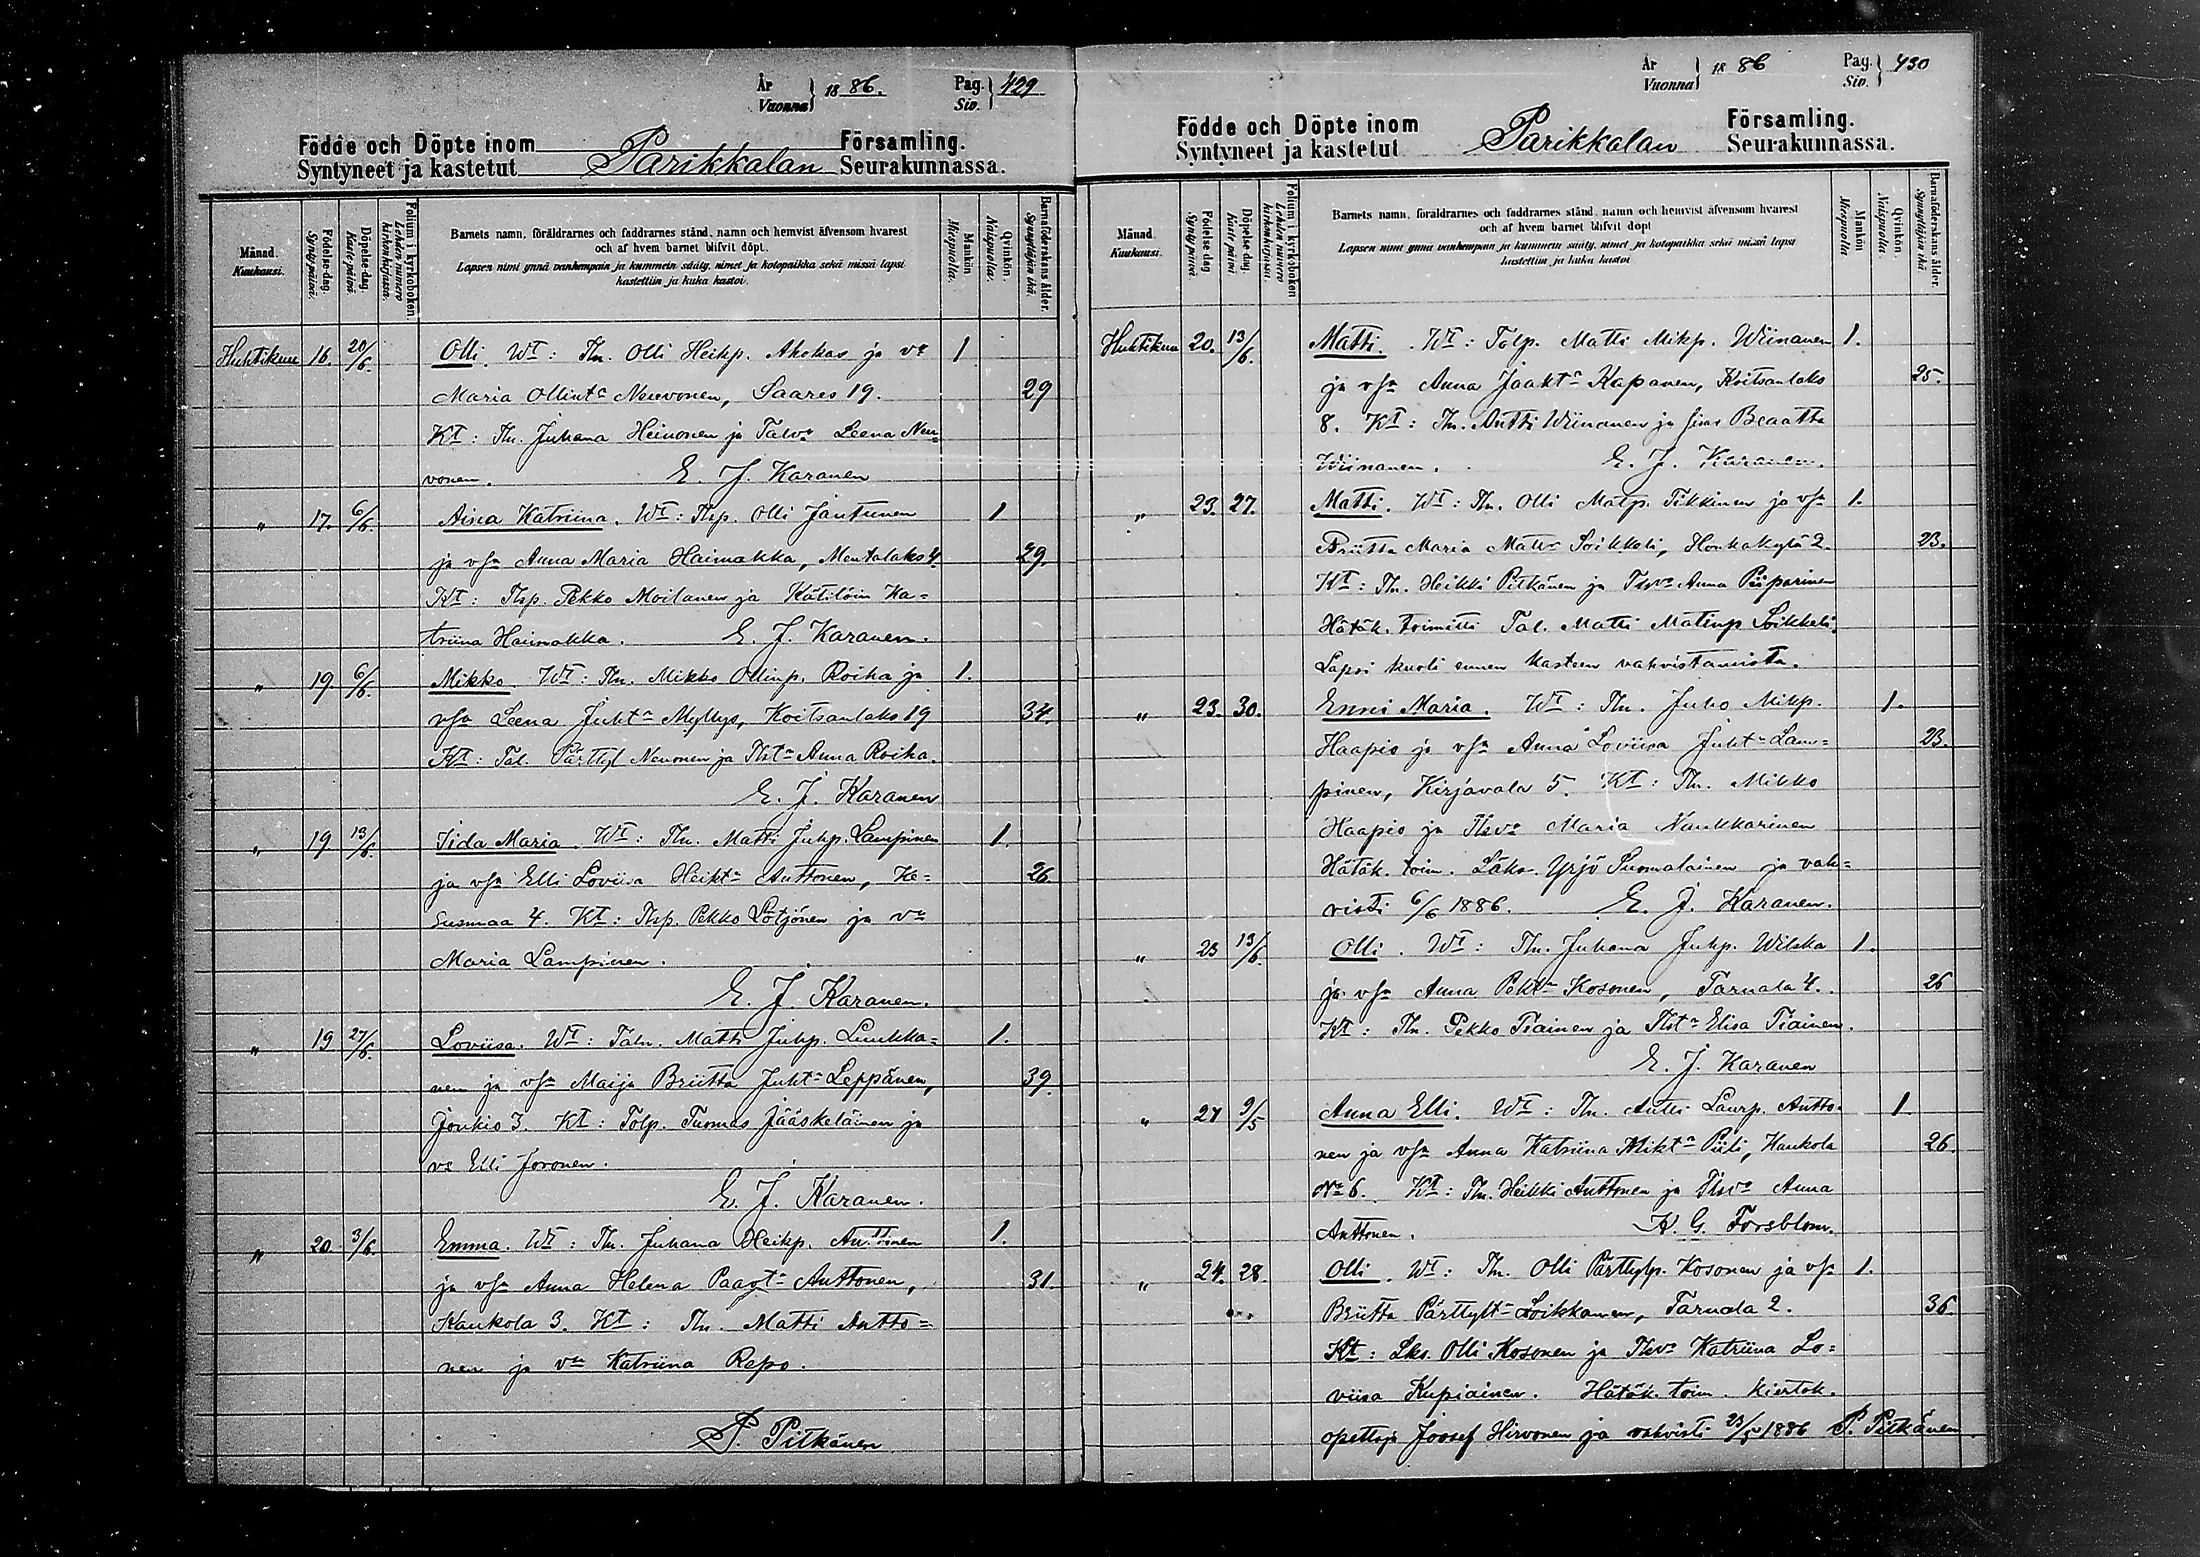 År Vuonna 1886. Pag. Siv. 429
Födde och Döpte inom Församling.
Syntyneet ja kastetut Parikkalan Seurakunnassa.
Månad. Kuukausi.
Födelse-dag. Syntypäivä.
Döpelse-dag. Kastepäivä.
Folium i kyrkoboken. Lehden numero kirkonkirjassa.
Barnets namn, föräldrarnes och faddrarnes stånd, namn och hemvist äfvensom hvarest
och af hvem barnet blifvit döpt.
Lapsen nimi ynnä vanhempain ja kummein sääty, nimet ja kotopaikka sekä missä lapsi
kastettiin ja kuka kastoi.
Mankön. Miespuolia.
Qvinkön. Naispuolia.
Barnaföderskans ålder. Synnyttäjän ikä.
Huhtikuu 16. 20/6. Olli. Wt: Itn. Olli Heikp. Ahokas ja vo 1
Maria Ollint Neuvonen, Saares 19. 29
Kt: Itn. Juhana Heinonen ja Talvo Leena Neu=
vonen. E. J. Karanen
" 17. 6/6. Aina Katriina. Wt: Itsp. Olli Jantunen 1
ja vsa Anna Maria Haimakka, Mentalaks 4. 29.
Kt: Itsp. Pekko Moilanen ja Kätilöin Ka=
triina Haimakka. E. J. Karanen.
" 19 6/6. Mikko. Wt: Itn. Mikko Ollinp. Roiha ja 1.
vsa Leena Juhta Myllys, Koitsanlaks 19 34.
Kt: Tal. Pärttyl Neuonen ja Itsta Anna Roiha.
E. J. Karanen
" 19 13/6. Iida Maria. Wt: Itn. Matti Juhp. Lampinen 1.
ja vsa Elli Loviisa Heikta Anttonen, Ke= 26
susmaa 4. Kt: Itsp. Pekko Lötjönen ja vo
Maria Lampinen.
E. J. Karanen.
" 19 27/6. Loviisa. Wt: Taln. Matti Juhp. Luukka= 1.
nen ja vsa Maija Briitta Juhta Leppänen, 39.
Joukio 3. Kt: Tolp. Tuomas Jääskeläinen ja
vo Elli Joronen.
E. J. Karanen.
" 20 3/6. Emma. Wt: Itn. Juhana Heikp. Anttonen 1.
ja vsa Anna Helena Paavta Anttonen, 31.
Kaukola 3. Kt: Itn. Matti Antto=
nen ja vo Katriina Repo.
P. Pitkänen
År Vuonna 1886 Pag. Siv. 430
Födde och Döpte inom Församling.
Syntyneet ja kastetut Parikkalan Seurakunnassa.
Månad. Kuukausi.
Födelse-dag. Syntypäivä.
Döpelse-dag. Kastepäivä.
Folium i kyrkoboken. Lehden numero kirkonkirjassa.
Barnets namn, föräldrarnes och faddrarnes stånd, namn och hemvist äfvensom hvarest
och af hvem barnet blifvit döpt
Lapsen nimi ynnä vanhempain ja kummein sääty, nimet ja kotopaikka sekä missä lapsi
kastettiin ja kuka kastoi
Mankön Miespuolia
Qvinkön. Naispuolia.
Barnaföderskans ålder. Synnyttäjän ikä.
Huhtikuu 20. 13/6. Matti. Wt: Tolp. Matti Mikp. Wiinanen 1.
ja vsa Anna Jaakta Kapanen, Koitsanlaks 25.
8. Kt: Itn. Antti Wiinanen ja Beaatta
Wiinanen. E. J. Karanen.
" 23. 27. Matti. Wt: Itn. Olli Matp. Tikkinen ja vsa 1.
Briitta Maria Matta Soikkeli, Honkakylä 2. 23.
Kt: Itn. Heikki Pitkänen ja Itsvo Anna Piiparinen
Hätäk. toimitti Tal. Matti Matinp Soikkeli.
Lapsi kuoli ennen kasteen vahvistamista.
" 23. 30. Enni Maria. Wt: Itn. Juho Mikp. 1.
Haapio ja vsa Anna Loviisa Juhta Lam= 23.
pinen, Kirjavala 5. Kt: Itn. Mikko
Haapio ja Itsvo Maria Naukkarinen
Hätäk. toim. Läks. Yrjö Suomalainen ja vah=
visti 6/6 1886. E. J. Karanen.
" 23 13/6. Olli. Wt: Itn. Juhana Juhp. Wilska 1.
ja vsa Anna Pekta Kosonen, Tarnala 4. 26
Kt: Itn. Pekko Tiainen ja Itsta Elisa Tiainen.
E. J. Karanen
" 24 9/5 Anna Elli. Wt: Itn. Antti Laurp. Antto= 1
nen ja vsa Anna Katriina Mikta Piili, Kaukola 26.
No 6. Kt: Itn. Heikki Anttonen ja Itsvo Anna
Anttonen. K. G. Forsblom.
" 24. 28. Olli. Wt: Itn. Olli Pärttylp. Kosonen ja vsa 1.
Briitta Pärttylta Loikkanen, Tarnala 2. 36.
Kt: Lks. Olli Kosonen ja Itsvo Katriina Lo=
viisa Kupiainen. Hätäk. toim. kiertok.
opettaja Joosef Hirvonen ja vahvisti 23/5 1886 P. Pitkänen